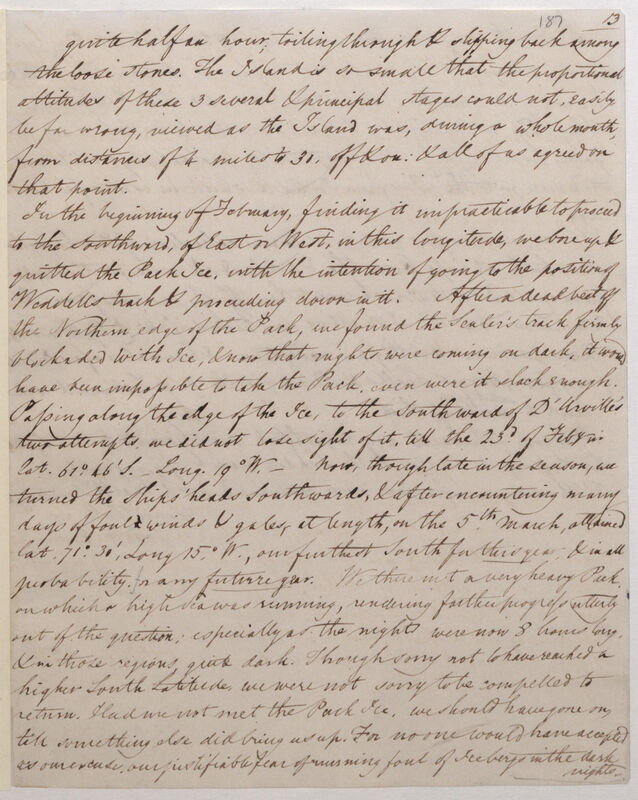 187 13
quite half an hour, toiling through & slipping back among
the loose stones. The Island is so small that the proportional
altitudes of these 3 several & principal stages could not, easily
be far wrong, viewed as the Island was, during a whole month
from distances of 4 miles to 30, off & on: & all of us agreed on
that point.
In the beginning of February, finding it impracticable to proceed
to the Southward, of East or West, in this longitude, we bore up &
quitted the Pack Ice, with the intention of going to the position of
Weddell's track & proceeding down in it. After a dead beat off
the Northern edge of the Pack, we found the Sealer's track firmly
blockaded with Ice, & now that nights were coming on dark, it would
have been impossible to take the Pack, even were it slack enough.
Passing along the edge of the Ice, to the Southward of D'Urville's
two attempts, we did not lose sight of it, till the 23d of Feby in
Lat. 61° 46' S. - Long. 19° W. - Now, though late in the season, we
turned the Ships' heads Southwards, & after encountering many
days of foul winds & gales, at length, on the 5th March, attained
Lat. 71° 30', Long 15° W., our furthest South for this year, & in all
probability, for any future year. We there met a very heavy Pack,
on which a high sea was running, rendering farther progress utterly
out of the question; especially as the nights were now 8 hours long,
& in those regions, quite dark. Though sorry not to have reached a
higher South Latitude, we were not sorry to be compelled to
return. Had we not met the Pack Ice, we should have gone on,
till something else did bring us up. For no one would have accepted
as our excuse, our justifiable fear of running foul of Icebergs in the dark
nights.